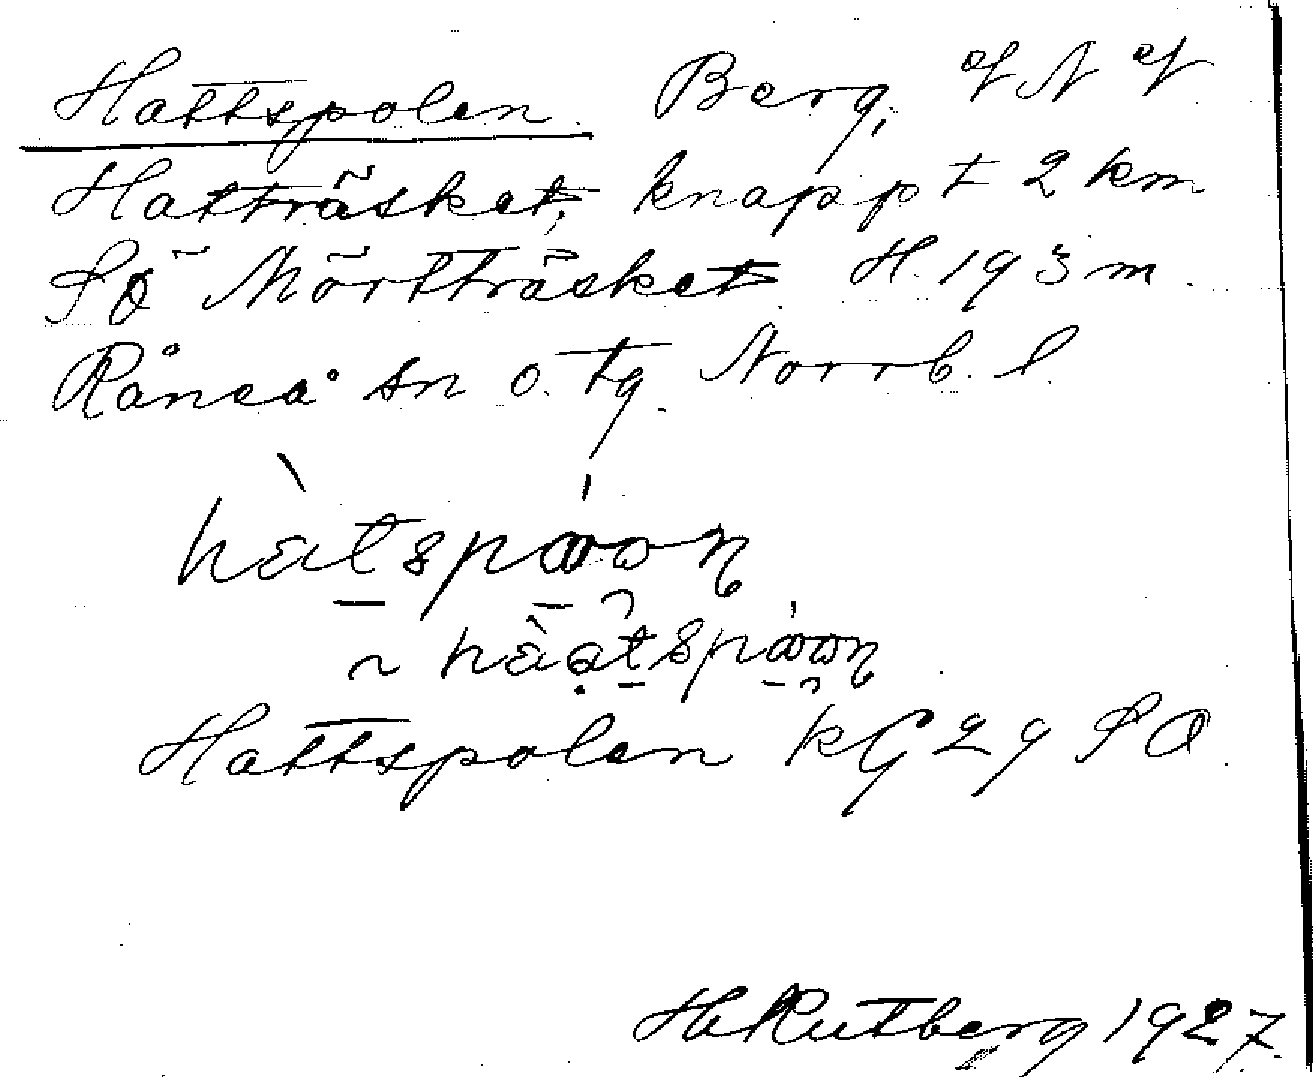 Hattspolen. Berg, V N V
Hatträsket, knappt 2 km
SÖ Mörtträsket. H. 193 m.
Råneå sn o. tg. Norrb. l.
hàtspáωωn
~ hàətspáωωn
Hattspolen kG 29 SO.
H. Rutberg 1927.